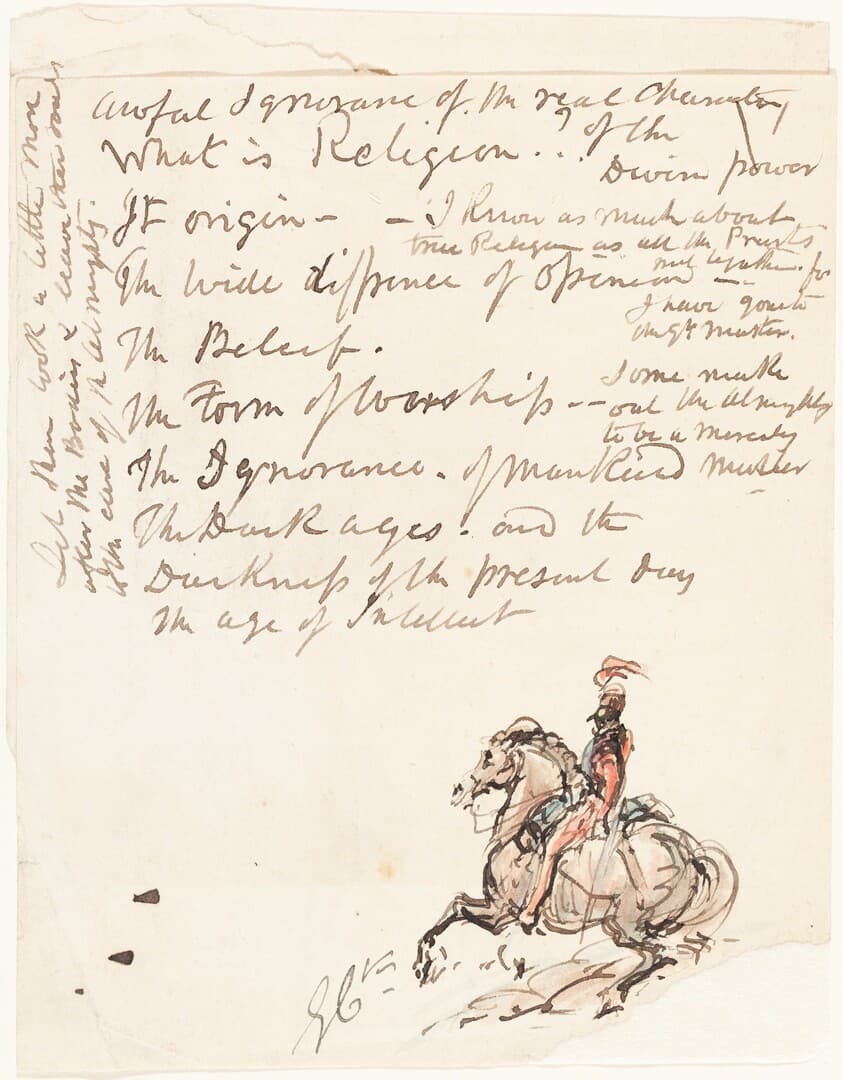 awful Ignorance of the real Character
of the
Divine power
What is Religion..?
It origin - - I know as much about
true Religion as all the Priests
put together. for
I have gone to
the Gt Master.
The wide diffrence of Opinion --
The Beleif.
The Form of Worship --
Some make
out the Almighty
to be a Merciless
Master
The Ignorance. of Mankind
The Dark ages. and the
Darkness of the present day
The age of Intellect
Let them look a little more
after the Bodies & leave the souls
to the care of the Almighty.